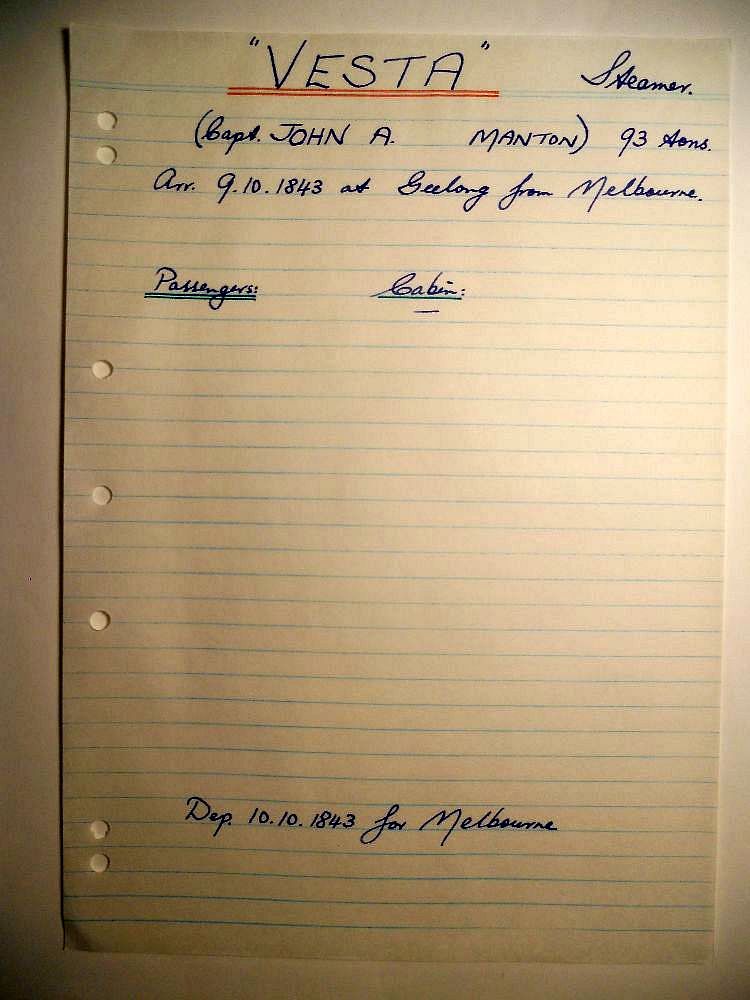 "VESTA" Steamer.
(Capt. JOHN A. MANTON) 93 tons.
Arr. 9.10.1843 at Geelong from Melbourne.
Passengers: Cabin:
—
Dep. 10.10.1843 for Melbourne